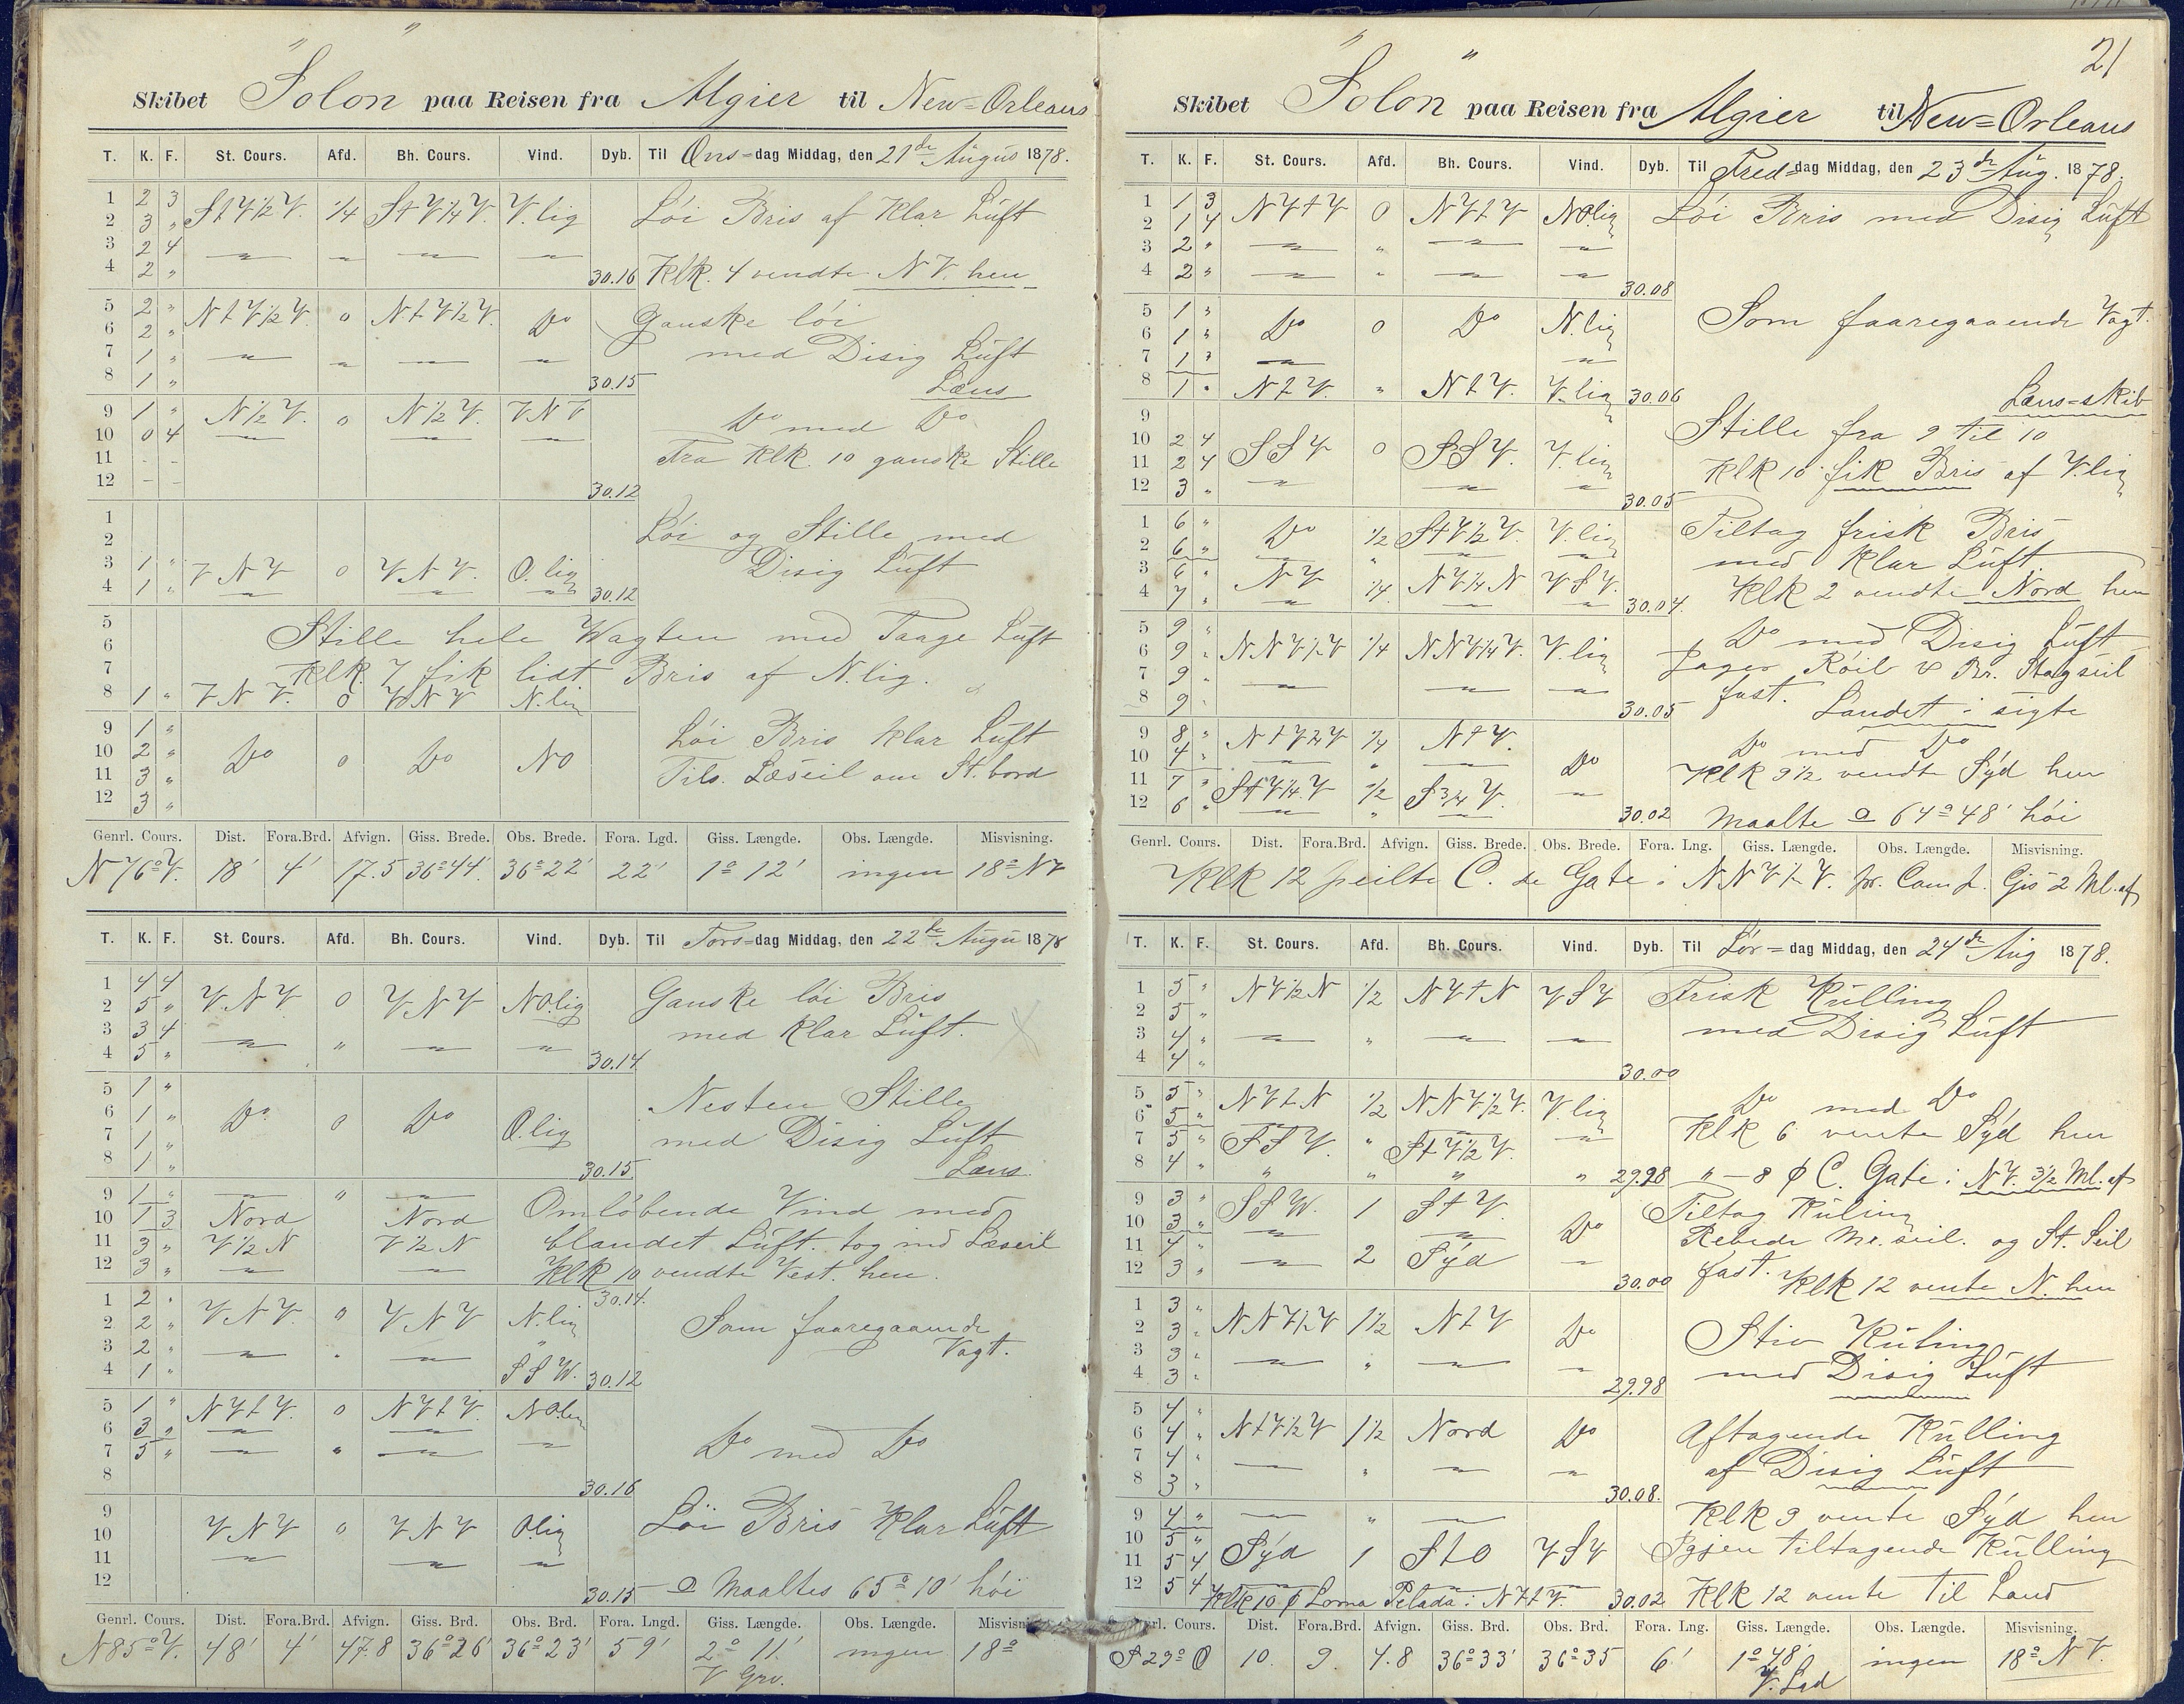 Skibet "Solon" paa Reisen fra Algier til New=Orleans
T. K. F. St. Cours. Afd. Bh. Cours. Vind. Dyb. Til Ons=dag Middag, den 21de Augus 1878.
1 2 3 StV½V. ¼ StV¼V. V.lig Löi Bris af Klar Luft
2 3 "
3 2 4
4 2 " 30.16 Klk. 4 vendte NV. hen
5 2 " NtV½V. 0 NtV½V. Do Ganske löi
6 2 "
7 1 " med Disig Luft
8 1 " 30.15 Læns
9 1 " N½V. 0 N½V. VNV Do med Do
10 0 4
11 - - Fra Klk. 10 ganske Stille
12 - - 30.12
1
2 Löi og Stille med
3 1 " VNV 0 VNV. O.lig Disig Luft
4 1 " 30.12
5
6 Stille hele Wagten med Taage Luft
7 Klk. 7 fik lidt Bris af N.lig.
8 1 " VNV. 0 VNV N.lig
9 1 " Löi Bris Klar Luft
10 2 " Do 0 Do NO
11 3 " Tils. Læseil om St.bord
12 3 "
Genrl. Cours. Dist. Fora.Brd. Afvign. Giss. Brede. Obs. Brede. Fora. Lgd. Giss. Længde. Obs. Længde. Misvisning.
N76°V. 18' 4' 17.5 36°44' 36°22' 22' 1° 12' ingen 18° NV
T. K. F. St. Cours. Afd. Bh. Cours. Vind. Dyb. Til Tors=dag Middag, den 22de Augu 1878
1 4 4 VNV 0 VNV NO.lig Ganske löi Bris
2 5 "
3 3 4 med Klar Luft.
4 5 " 30.14
5 1 " Nesten Stille
6 1 " Do 0 Do O.lig
7 1 " med Disig Luft
8 1 " 30.15 Læns
9 1 " " Omlöbende Vind med
10 1 3 Nord Nord
11 3 " V½N V½N blandet Luft. tog ind Læseil
12 3 " Klk 10 vendte Vest. hen.
30.14.
1 2 " VNV. " VNV N.lig
2 2 " Som faaregaaende
3 2 " Vagt.
4 1 " SSW. 30.12
5 1 " NVtV. 0 NVtV. NO.lig
6 3 "
7 5 " Do med Do
8 30.16
9 Löi Bris Klar Luft
10 VNV 0 VNV O.lig
11
12 30.15 Maaltes 65° 10' höi
Genrl. Cours. Dist. Fora.Brd. Afvign. Giss. Brd. Obs. Brd. Fora. Lngd. Giss. Længde. Obs. Længde. Misvisning
N85°V. 48' 4' 47.8 36°26' 36°23' 59' 2° 11' ingen 18°
V Grv.
21
Skibet "Solon" paa Reisen fra Algier til New=Orleans
T. K. F. St. Cours. Afd. Bh. Cours. Vind. Dyb. Til Fred=dag Middag, den 23de Aug. 1878.
1 1 3 NVtV 0 NVtV NO.lig Löi Bris med Disig Luft
2 1 4
3 2 "
4 2 " 30.08
5 1 " Do 0 Do N.lig Som faaregaaende Vagt.
6 1 "
7 1 "
8 1 " NtV. " NtV. V.lig 30.06 Læns=skib
9 Stille fra 9 til 10
10 2 4 SSV 0 SSV. V.lig
11 2 4 Klk 10 fik Bris af V.lig
12 3 " 30.05
1 6 " Do ½ StV½V. V.lig Tiltag frisk Bris
2 6 " med Klar Luft
3 6 " NV ¼ NV¼N VSV.
4 7 " 30.04. Klk 2 vendte Nord hen
5 9 " Do med Disig Luft
6 9 " NNV½V ¼ NNV¼V. V.lig Jager Röil & Br. Stagseil
7 9 " fast.
8 9 " 30.05 Landet i sigte
9 8 " NtV¾V ¼ NtV. Do med Do
10 4 " Do Klk 9½ vendte Syd hen
11 7 " StV¼V ½ S¾V.
12 6 " 30.02 Maalte 64° 48' höi
Genrl. Cours. Dist. Fora.Brd. Afvign. Giss. Brede. Obs. Brede. Fora. Lng. Giss. Længde. Obs. Længde. Misvisning.
Klk 12 peilte C. de Gate i NNV½V. pr. Comp. Gis 2 Ml. af
T. K. F. St. Cours. Afd. Bh. Cours. Vind. Dyb. Til Lör=dag Middag, den 24de Aug 1878.
1 5 " NV½N ½ NVtN VSV Frisk Kulling
2 5 "
3 4 " med Disig Luft
4 4 " 30.00
5 5 " NVtN ½ NNV½V. V.lig Do med Do
6 5 " Klk 6 vente Syd hen
7 5 " SSV. " StV½V.
8 4 " " " " " 29.98 " — 8 ϕ C. Gate i NV. 3½ Ml. af
9 3 " SSW. 1 StV. Tiltog Kuling
10 3 " Do Rebede Me. seil. og St. Seil
11 4 " 2 Syd fast.
12 3 " 30.00 Klk 12 vente N. hen
1 3 " NNV½V 1½ NtV Do Stiv Kuling
2 3 "
3 3 " med Disig Luft
4 3 " 29.98
5 4 " NtV½V 1½ Nord Do Aftagende Kulling
6 4 "
7 4 " af Disig Luft
8 3 " 30.08.
9 4 " " Klk 9 vente Syd hen
10 5 "
11 5 4 Syd 1 StO VSV Igjen tiltagende Kulling
12 5 4 Klk 10 ϕ Loma Pelada i NVtV. 30.02 Klk 12 vente til Land
Cours. Dist. Fora.Brd. Afvign. Giss. Brd. Obs. Brd. Fora. Lng. Giss. Længde. Obs. Længde. Misvisning.
S29°O 10. 9. 4.8 36°33' 36°35 6' 1° 48' ingen 18° NV.